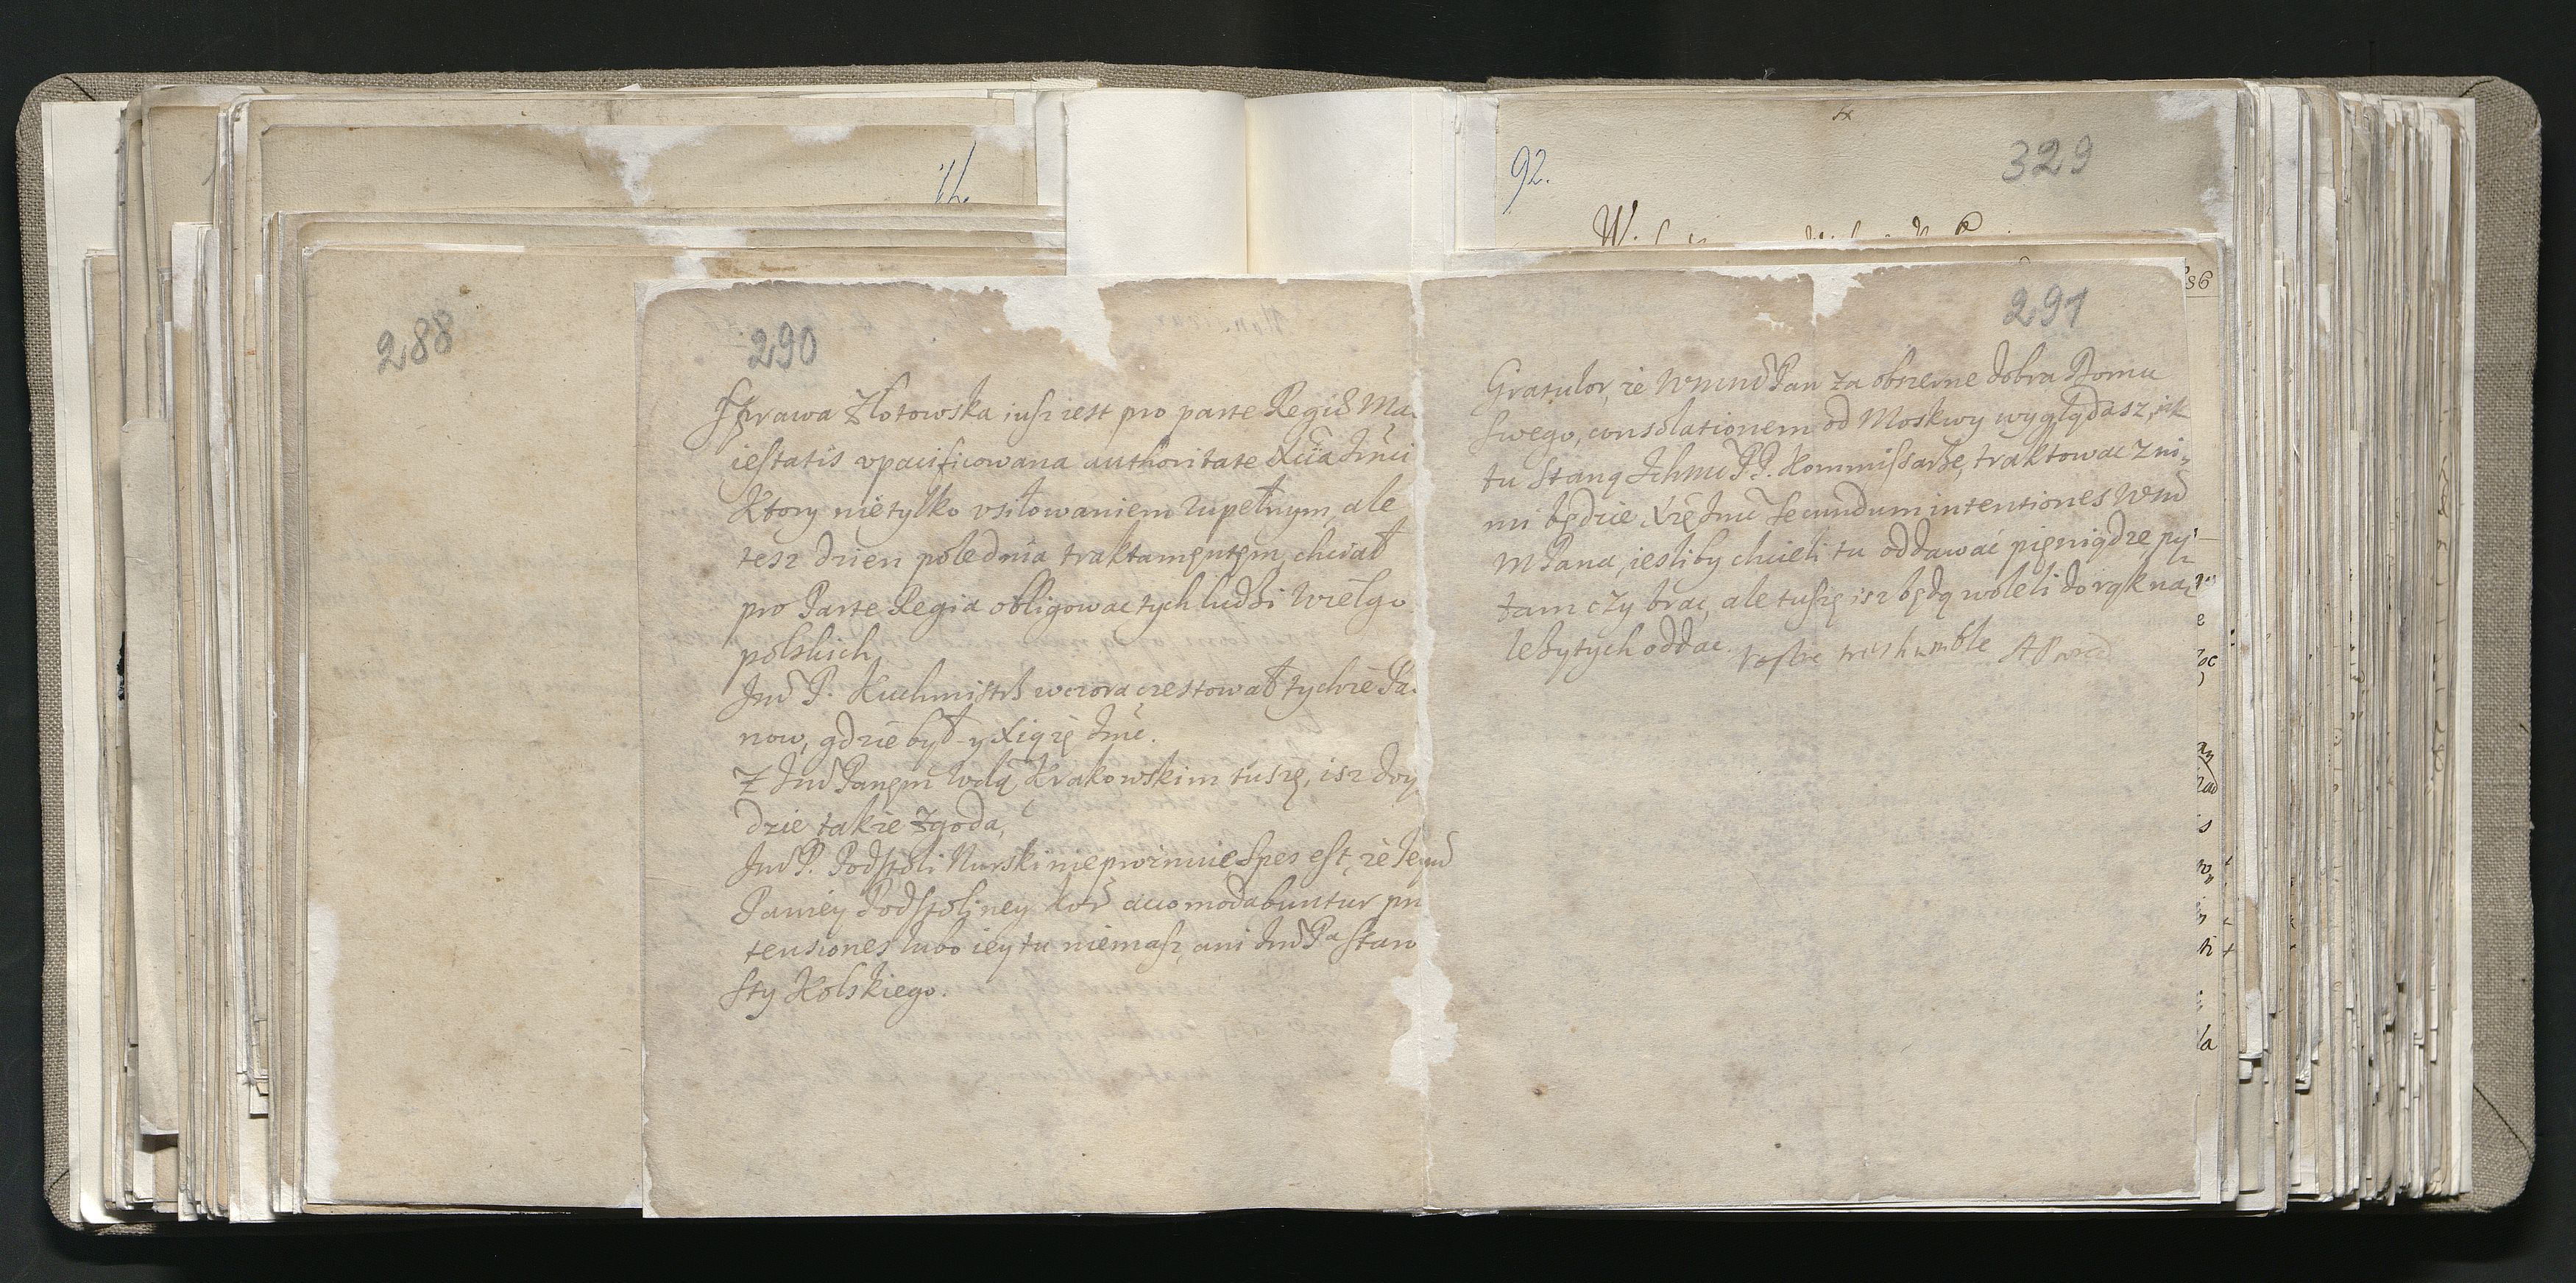 288
290
Sprawa Zlotowska iusz iest pro parte Regis Ma-
iestatis upacificowana authoritate Xcia Jmci
Ktory nie tylko usiłowaniem zupełnym, ale
tesz dzien polednia traktamentem, chciał
pro Parte Regia obligowac tych ludzi Wielgo
polskich,
Jmc P. Kuchmistrz wczora czestował tychze Pa-
now, gdzie był y Xiąże Jmc.
Z Jmc Panem Wdą Krakowskim tuszę, isz doy
dzie także zgoda,
Jmc P. Podstoli Nurski nie prożnuie, Spes est, że Jeymc
Paniey Podstoliney Kor accomodabuntur prę
tensiones, lubo iey tu niemasz, ani Jmc Pa Staro
sty Kolskiego.
92.
329
291
Gratulor, że WmmPan za obszerne dobra Domu
swego, consolationem od Moskwy wyglądasz, iak
tu staną Ichmc PP. Kommissarze, traktowac z ni-
mi będzie Xżę Jmc secundum intentiones Wm
MPana, iesliby chcieli tu oddawać pieniądze py-
tam czy brac, ale tuszę isz będą woleli do rąk na
leżytych oddac.
Vostre tres humble